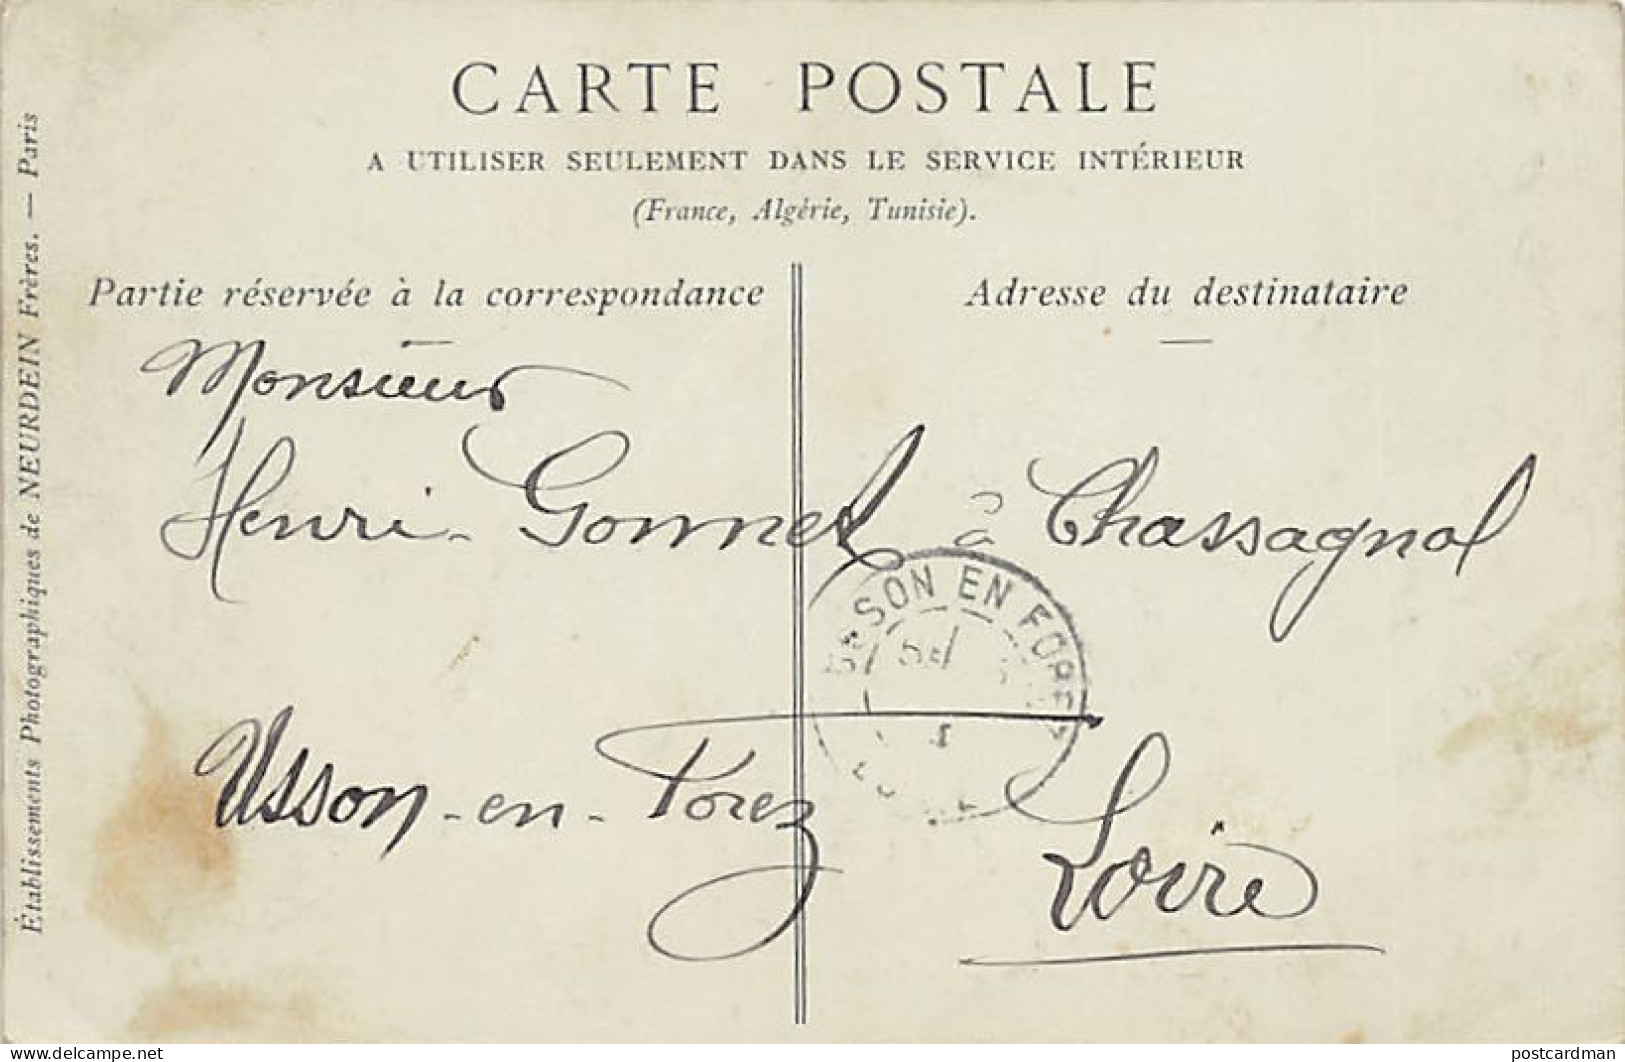 CARTE POSTALE
A UTILISER SEULEMENT DANS LE SERVICE INTÉRIEUR
(France, Algérie, Tunisie).
Partie réservée à la correspondance
Adresse du destinataire
Monsieur
Henri Gonnet à Chassagnol
Usson-en-Forez
Loire
SSON EN FOREZ
Établissements Photographiques de NEURDEIN Frères. — Paris
delcampe.net
postcardman